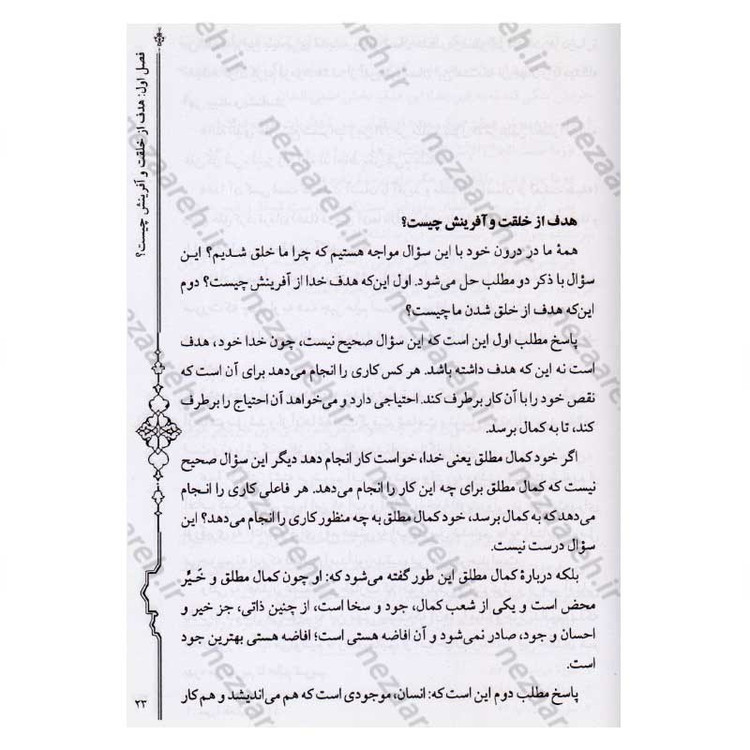 فصل اول: هدف از خلقت و آفرینش چیست؟
هدف از خلقت و آفرینش چیست؟
همهٔ ما در درون خود با این سؤال مواجه هستیم که چرا ما خلق شدیم؟ این
سؤال با ذکر دو مطلب حل می‌شود. اول این‌که هدف خدا از آفرینش چیست؟ دوم
این‌که هدف از خلق شدن ما چیست؟
پاسخ مطلب اول این است که این سؤال صحیح نیست، چون خدا خود، هدف
است نه این که هدف داشته باشد. هر کس کاری را انجام می‌دهد برای آن است که
نقص خود را با آن کار برطرف کند. احتیاجی دارد و می‌خواهد آن احتیاج را برطرف
کند، تا به کمال برسد.
اگر خود کمال مطلق یعنی خدا، خواست کار انجام دهد دیگر این سؤال صحیح
نیست که کمال مطلق برای چه این کار را انجام می‌دهد. هر فاعلی کاری را انجام
می‌دهد که به کمال برسد، خود کمال مطلق به چه منظور کاری را انجام می‌دهد؟ این
سؤال درست نیست.
بلکه دربارهٔ کمال مطلق این طور گفته می‌شود که: او چون کمال مطلق و خَیرُ
محض است و یکی از شعب کمال، جود و سخا است، از چنین ذاتی، جز خیر و
احسان و جود، صادر نمی‌شود و آن افاضه هستی است؛ افاضه هستی بهترین جود
است.
پاسخ مطلب دوم این است که: انسان، موجودی است که هم می‌اندیشد و هم کار
۲۳
nezaareh.ir
nezaareh.ir
nezaareh.ir
nezaareh.ir
nezaareh.ir
nezaareh.ir
nezaareh.ir
nezaareh.ir
nezaareh.ir